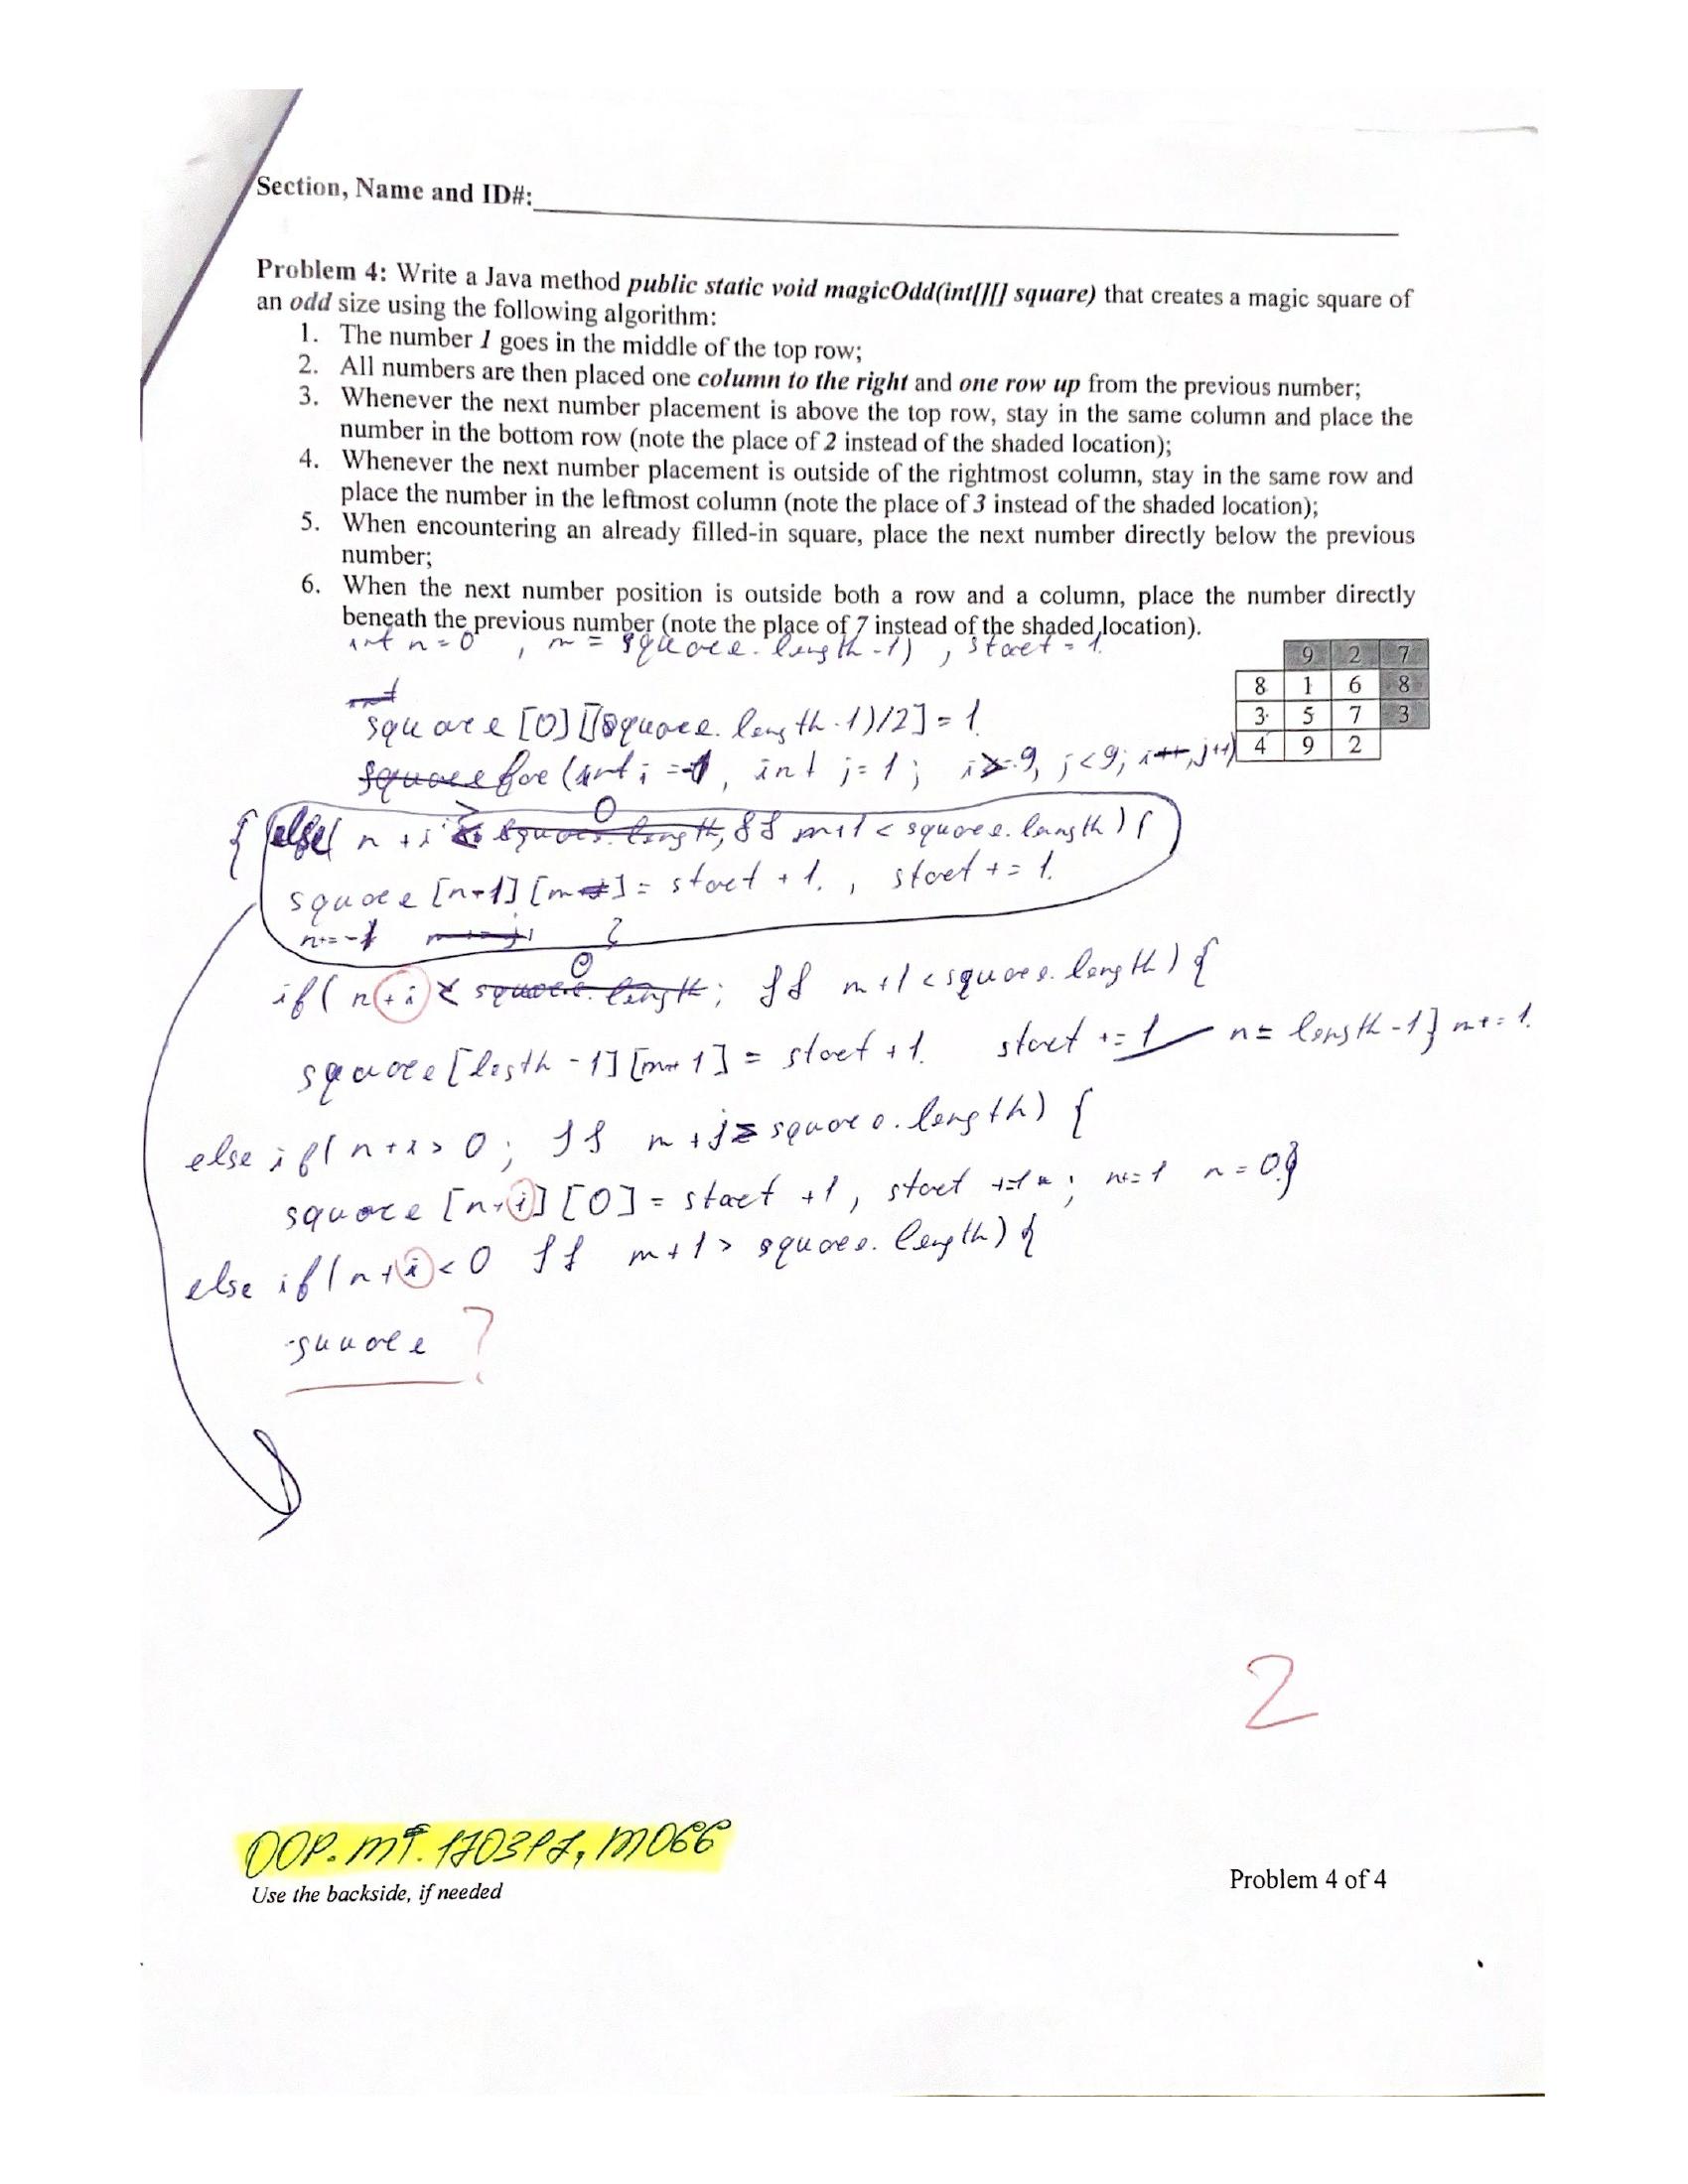 Section, Name and ID#:
Problem 4: Write a Java method public static void magicOdd(int[][] square) that creates a magic square of
an odd size using the following algorithm:
1. The number 1 goes in the middle of the top row;
2. All numbers are then placed one column to the right and one row up from the previous number;
3. Whenever the next number placement is above the top row, stay in the same column and place the
number in the bottom row (note the place of 2 instead of the shaded location);
4. Whenever the next number placement is outside of the rightmost column, stay in the same row and
place the number in the leftmost column (note the place of 3 instead of the shaded location);
5. When encountering an already filled-in square, place the next number directly below the previous
number;
6. When the next number position is outside both a row and a column, place the number directly
beneath the previous number (note the place of 7 instead of the shaded location).
int n = 0 , m = square.length-1) , start = 1.
9 2 7
8 1 6 8
3 5 7 3
4 9 2
square [0] [(square.length-1)/2] = 1
for (int i = -1, int j = 1; i > -9, j < 9; i--, j++)
{ else( n + i > 0 && m+1 < square.length) {
square [n-1] [m ] = start + 1. , start += 1.
n+= -1 }
if( n + i < 0 && m+1 < square.length) {
square [length - 1] [m+1] = start + 1. start += 1 n = length-1} m+= 1.
else if( n + i > 0; && m + j ≥ square.length) {
square [n+i] [0] = start +1, start +=1 ; n+= 1 n = 0.}
else if( n + i < 0 && m+1 > square.length) {
square ?
2
OOP. MT. , M066
Use the backside, if needed
Problem 4 of 4